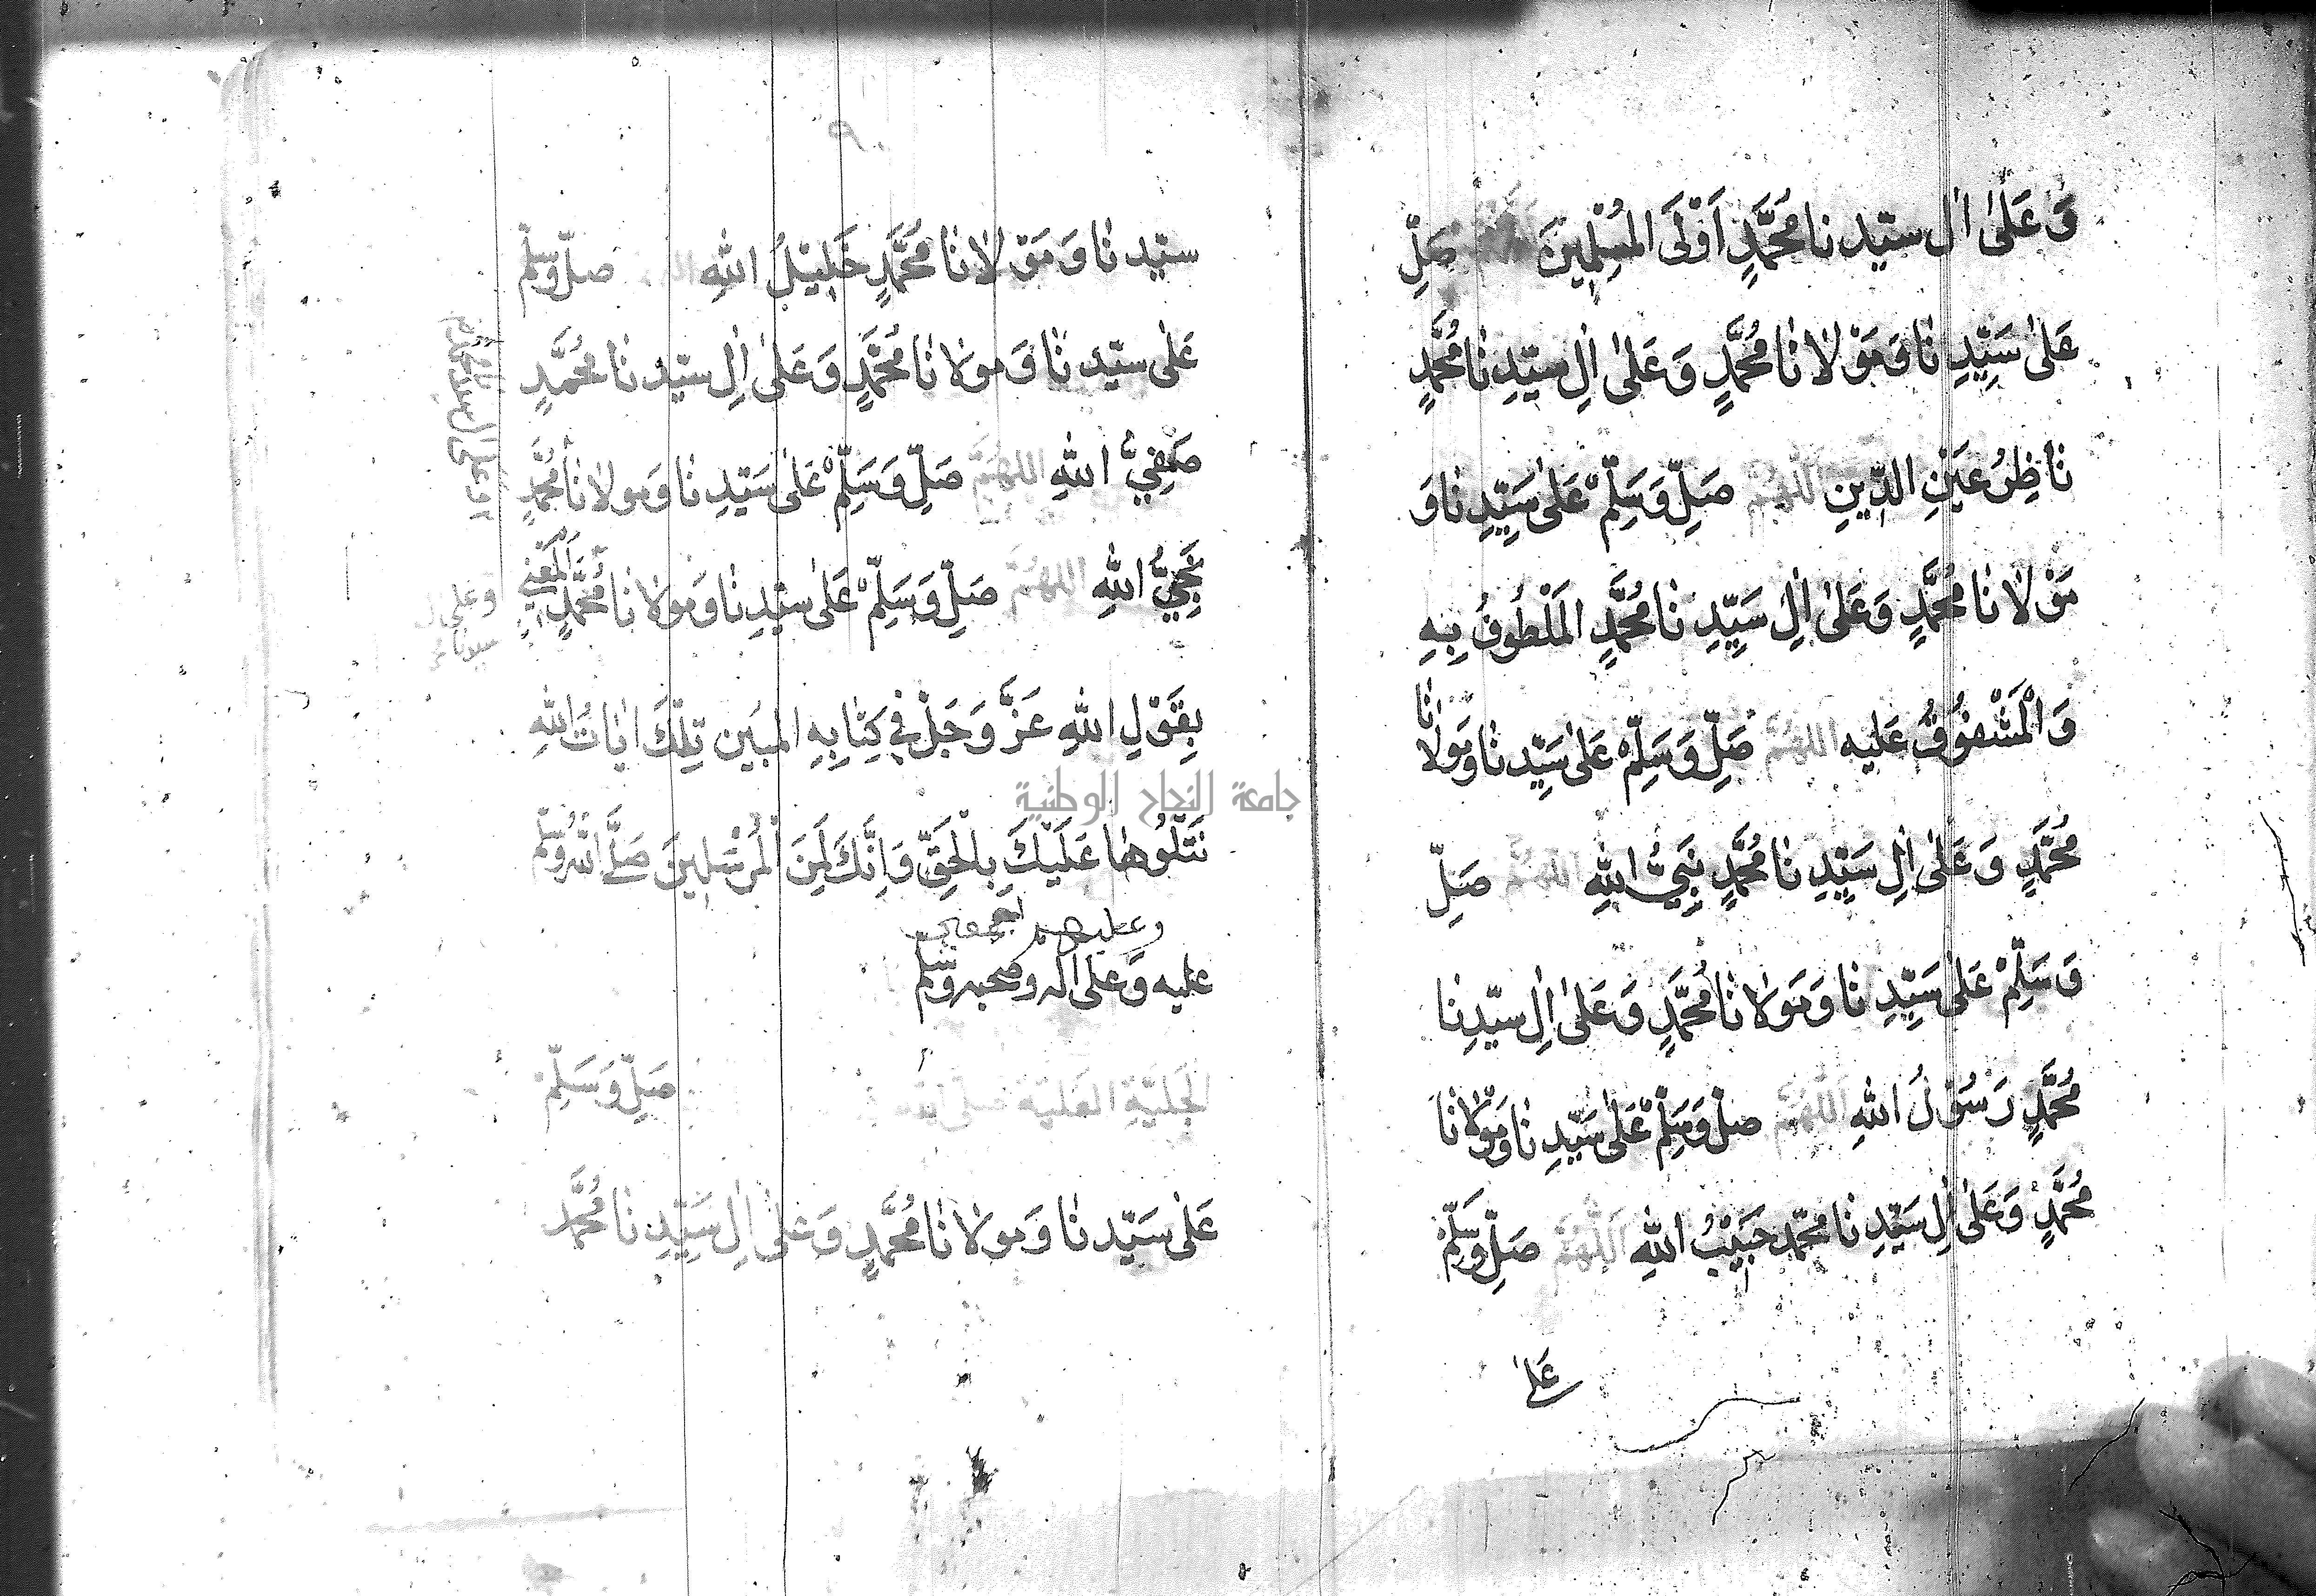 وَعَلىٰ اٰل سيّدنا مُحَمَّدٍ اَوْلَى المُسْلِمِينَ صَلِّ
عَلىٰ سَيِّدِنَا وَمَوْلَانَا مُحَمَّدٍ وَعَلىٰ اٰلِ سيّدِنَا مُحَمَّدٍ
نَاظِرُ عَيْنِ الدِّينِ اَللّٰهُمَّ صَلِّ وَسَلِّمْ عَلىٰ سَيِّدِنَا وَ
مَوْلَانَا مُحَمَّدٍ وَعَلىٰ اٰلِ سَيِّدِنَا مُحَمَّدٍ المَلْطُوفُ بِهِ
وَالْمَشْفُوقُ عَلَيه اللهُمَّ صَلِّ وَسَلِّمْ عَلىٰ سَيِّدِنَا وَمَولَانَا
مُحَمَّدٍ وَعَلىٰ اٰلِ سَيِّدِنَا مُحَمَّدٍ نَبِيُّ اللهِ اللهُمَّ صَلِّ
وَسَلِّمْ عَلىٰ سَيِّدِنَا وَمَولَانَا مُحَمَّدٍ وَعَلىٰ اٰلِ سيّدِنَا
مُحَمَّدٍ رَسُوْلُ اللهِ اَللّٰهُمَّ صلّ وَسَلِّمْ عَلىٰ سَيِّدِنَا وَمَوْلَانَا
مُحَمَّدٍ وَعَلىٰ اٰلِ سَيِّدِنَا محمّد حَبِيْبُ اللهِ اَللّٰهُمَّ صَلِّ وَسَلِّمْ
عَلىٰ
٩
سيّدنَا وَمَوْلَانَا مُحَمَّدٍ خَلِيْلُ اللهِ صلّ وسلّم
عَلىٰ سيّدنَا وَمَولَانَا مُحَمَّدٍ وَعَلىٰ اٰلِ سيّدنَا مُحَمَّدٍ
صَفِيُّ اللهِ اللهُمَّ صَلِّ وَسَلِّمْ عَلىٰ سَيِّدِنَا وَمَولَانَا مُحَمَّدٍ
وعلى ال سيدنا محمد
نَجِيُّ اللهِ اللهُمَّ صَلِّ وَسَلِّمْ عَلىٰ سيّدِنَا وَمَولَانَا مُحَمَّدٍ اَلْمَعْنِي
وعلى
بِقَوْلِ اللهِ عَزَّ وَجَلَّ فِي كِتَابِهِ المبين تِلْكَ اٰيَاتُ اللهِ
نَتْلُوهَا عَلَيْكَ بِالْحَقِّ وَاِنَّكَ لَمِنَ الْمُرْسَلِينَ صَلَّى اللهُ وَسَلَّم
وعليهم اجمعين
عليه وَعَلى اٰله وصحبه وسلّم
الجَلِيَّةِ العَلِيَّةِ صَلِّ وَسَلِّمْ
عَلىٰ سَيِّدنَا وَمَولَانَا مُحَمَّدٍ وَعَلىٰ اٰلِ سَيِّدِنَا مُحَمَّد
جامعة النجاح الوطنية